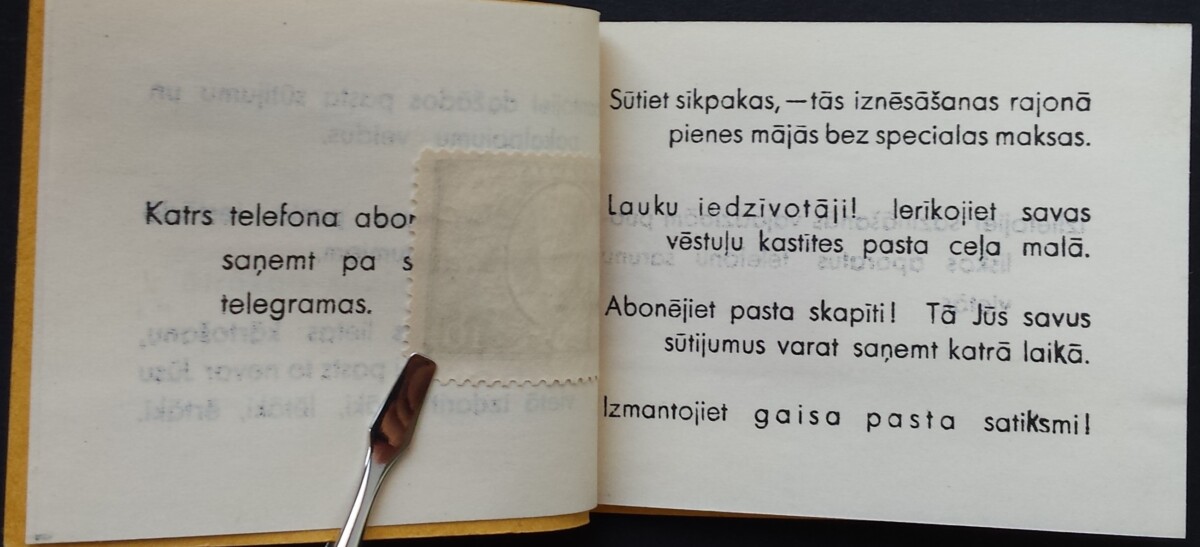 Katrs telefona abo
saņemt pa
telegramas.
Sūtiet sīkpakas, — tās iznēsāšanas rajonā
pienes mājās bez specialas maksas.
Lauku iedzīvotāji! Ierīkojiet savas
vēstuļu kastītes pasta ceļa malā.
Abonējiet pasta skapīti! Tā Jūs savus
sūtijumus varat saņemt katrā laikā.
Izmantojiet gaisa pasta satiksmi!